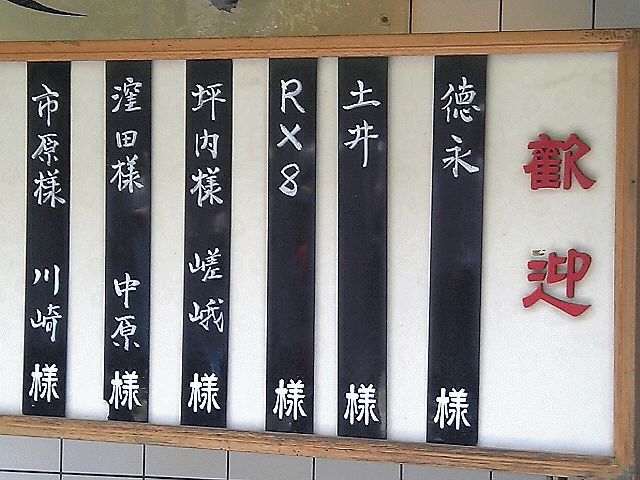 歓迎
徳永 様
土井 様
RX8 様
坪内様 嵯峨 様
窪田様 中原 様
市原様 川崎 様